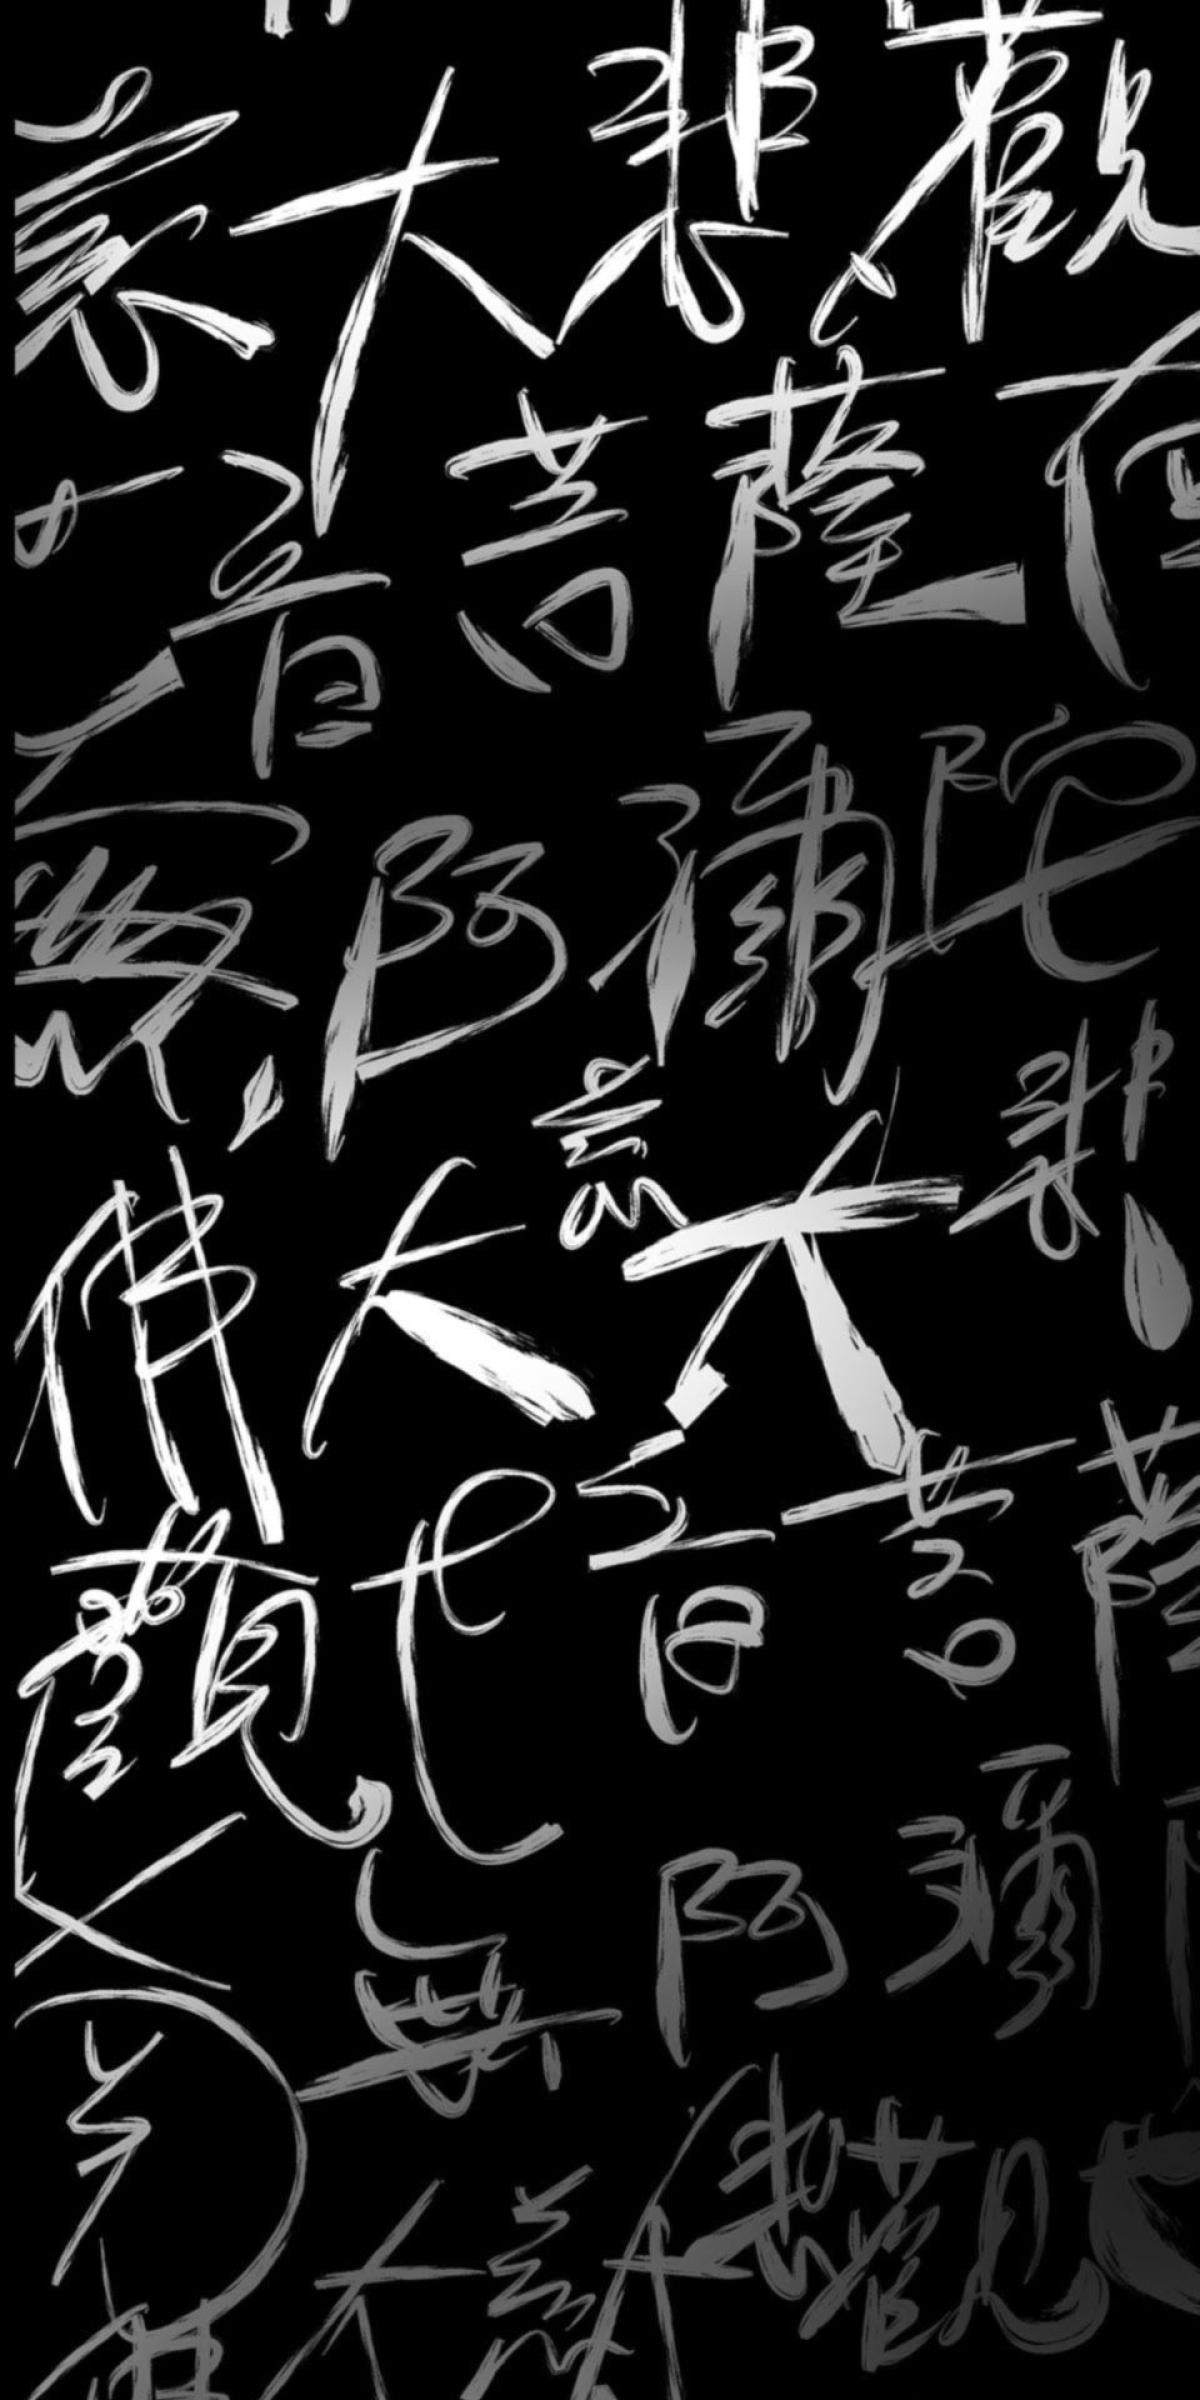 慈大悲觀
音菩薩
無阿彌陀
佛大慈大悲
觀世音菩薩
南無阿彌
大慈大悲觀